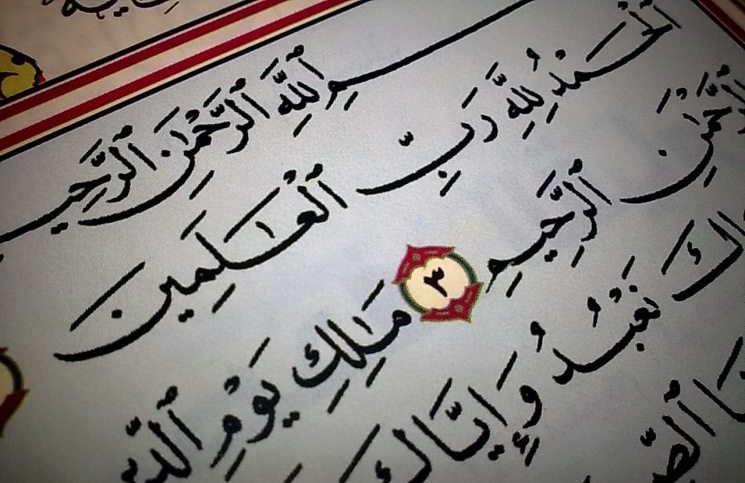 ٱللَّهِ ٱلرَّحْمَٰنِ ٱلرَّحِيـ
ٱلْحَمْدُ لِلَّهِ رَبِّ ٱلْعَٰلَمِينَ
ٱلرَّحْمَٰنِ ٱلرَّحِيمِ ٣ مَٰلِكِ يَوْمِ ٱلدِّ
ـاكَ نَعْبُدُ وَإِيَّاكَ
ـنَا ٱلصِّـ